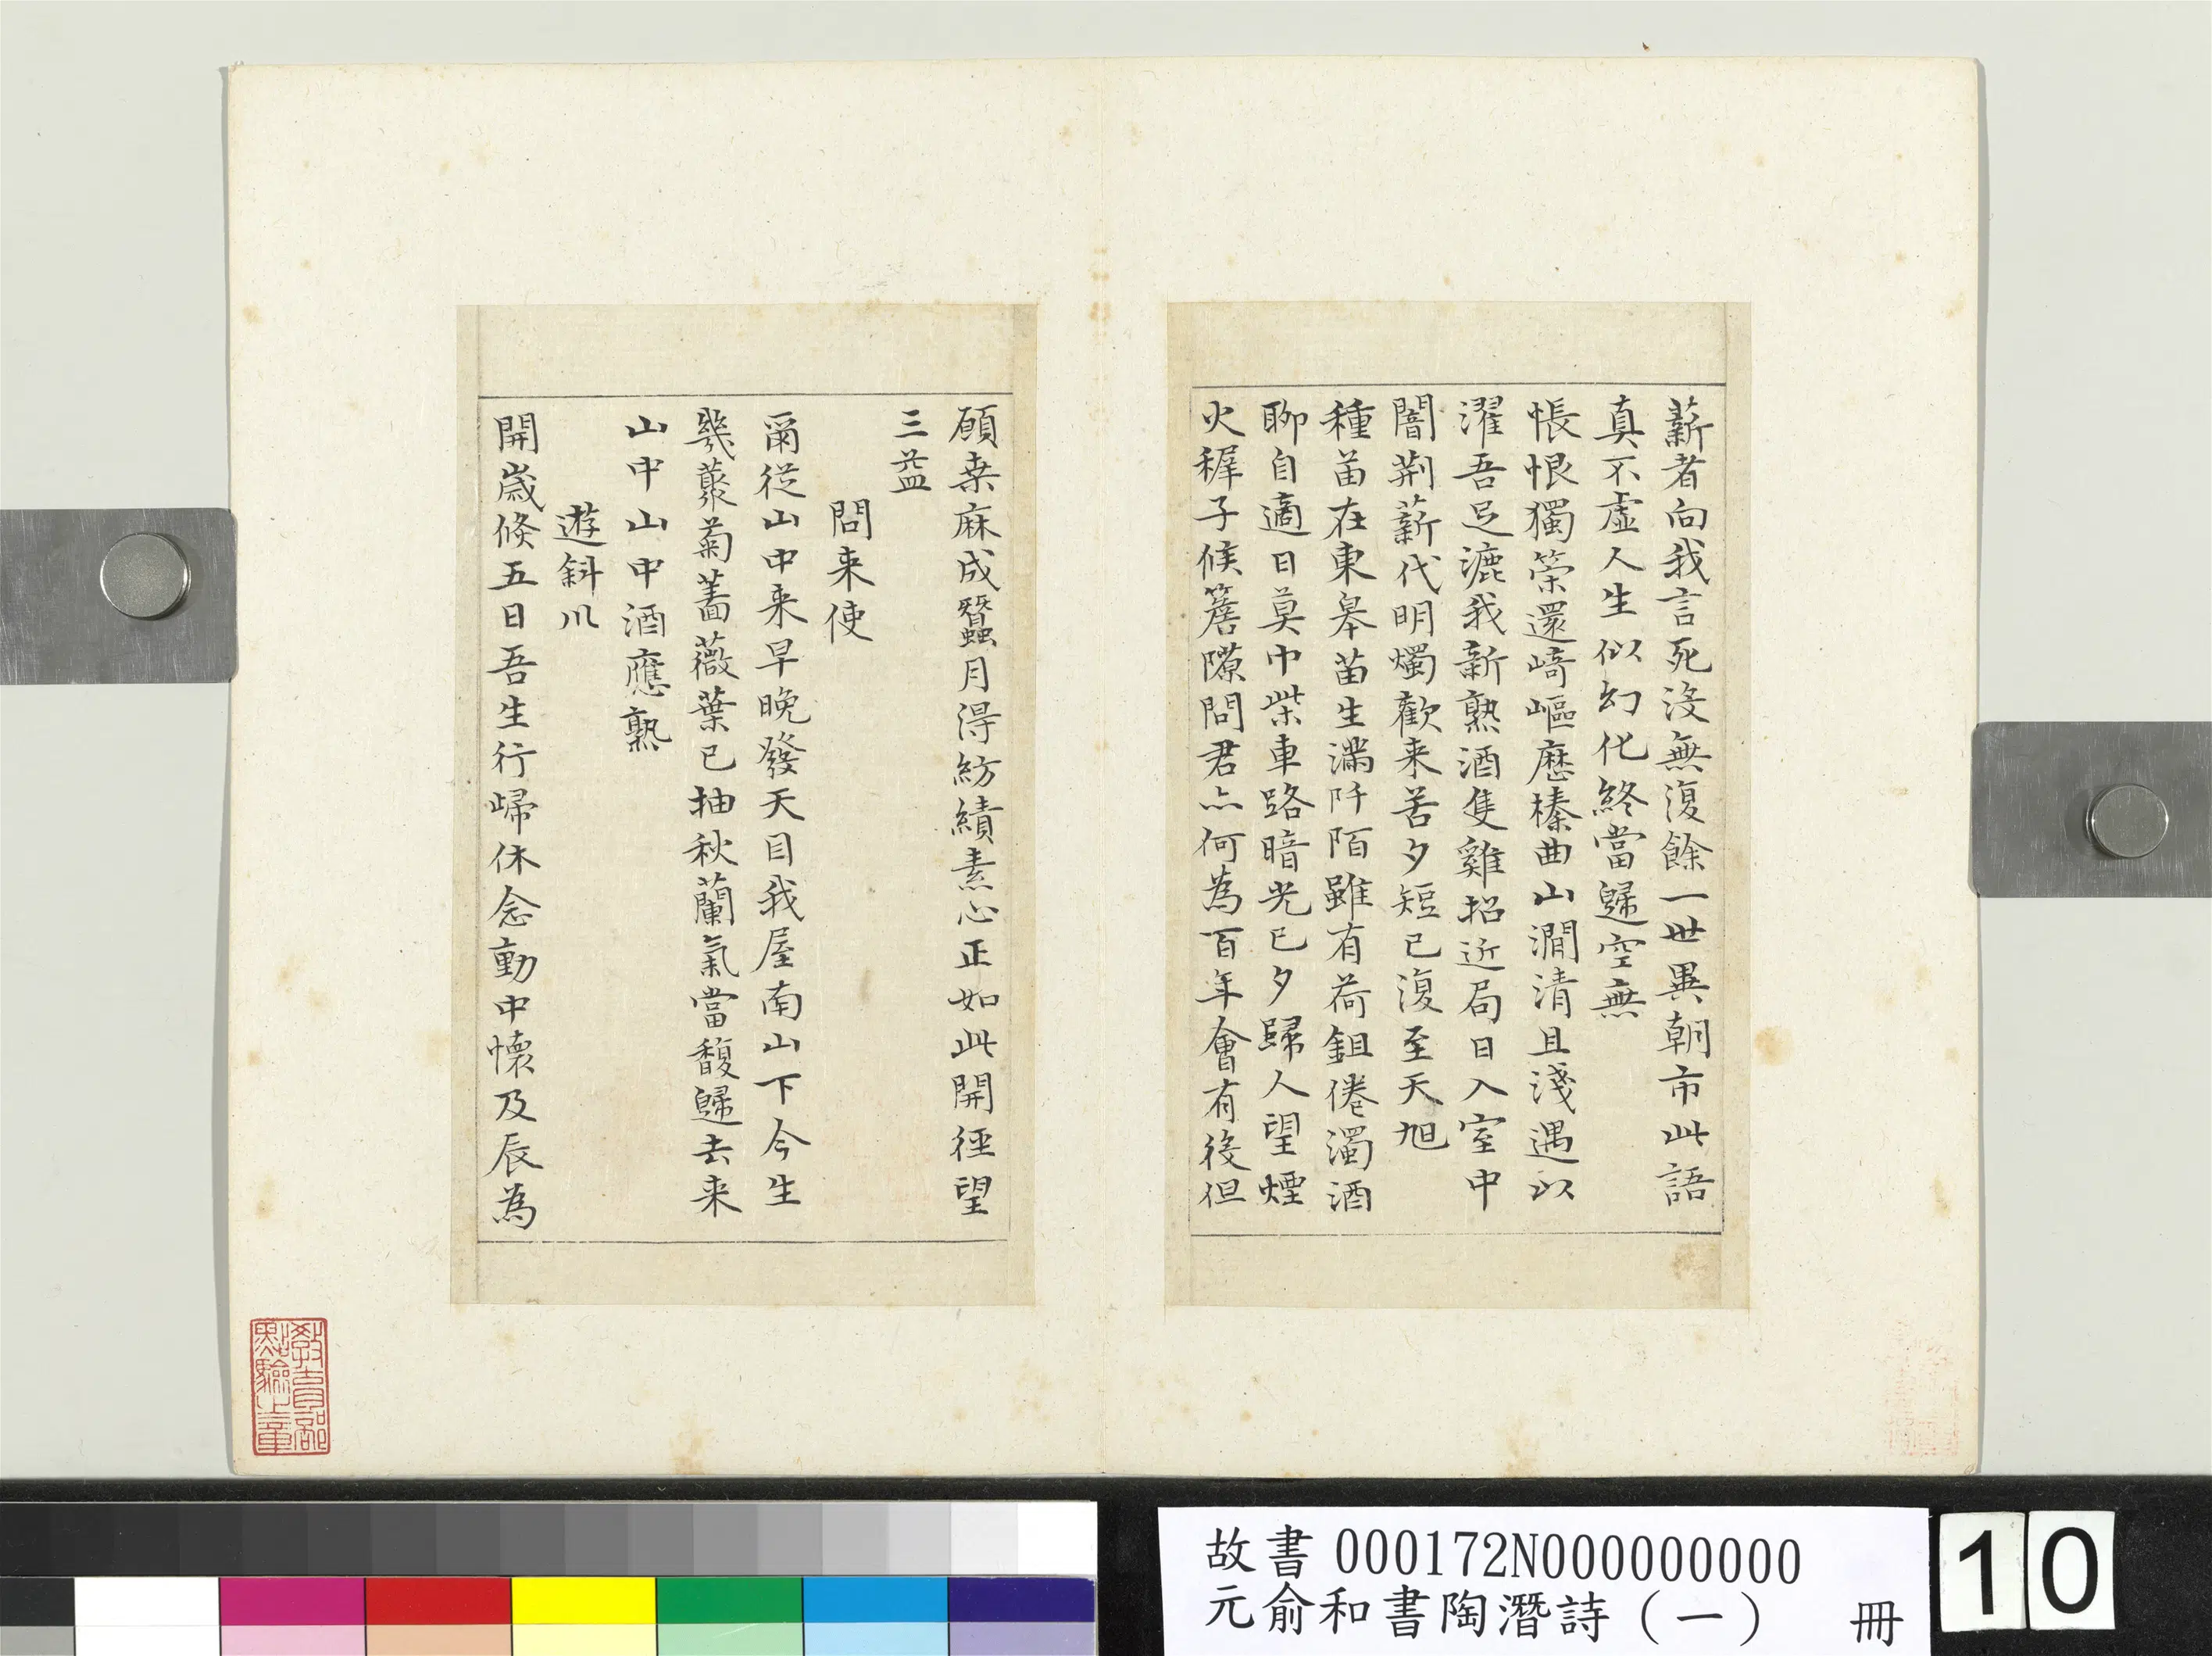 薪者向我言死沒無復餘一世異朝市此語
真不虛人生似幻化終當歸空無
悵恨獨策還崎嶇歷榛曲山澗清且淺遇以
濯吾足漉我新熟酒隻雞招近局日入室中
闇荊薪代明燭歡来苦夕短已復至天旭
種苗在東皋苗生滿阡陌雖有荷鉏倦濁酒
聊自適日莫巾柴車路暗光已夕歸人望煙
火稺子候簷隙問君亦何為百年會有役但
願桒麻成蠶月得紡績素心正如此開徑望
三益
問来使
爾從山中来早晚發天目我屋南山下今生
幾藂菊薔薇葉已抽秋蘭氣當馥歸去来
山中山中酒應熟
遊斜川
開歲倐五日吾生行歸休念動中懷及辰為
教育部
點驗之章
故書 000172N000000000
元俞和書陶潛詩（一） 冊
10